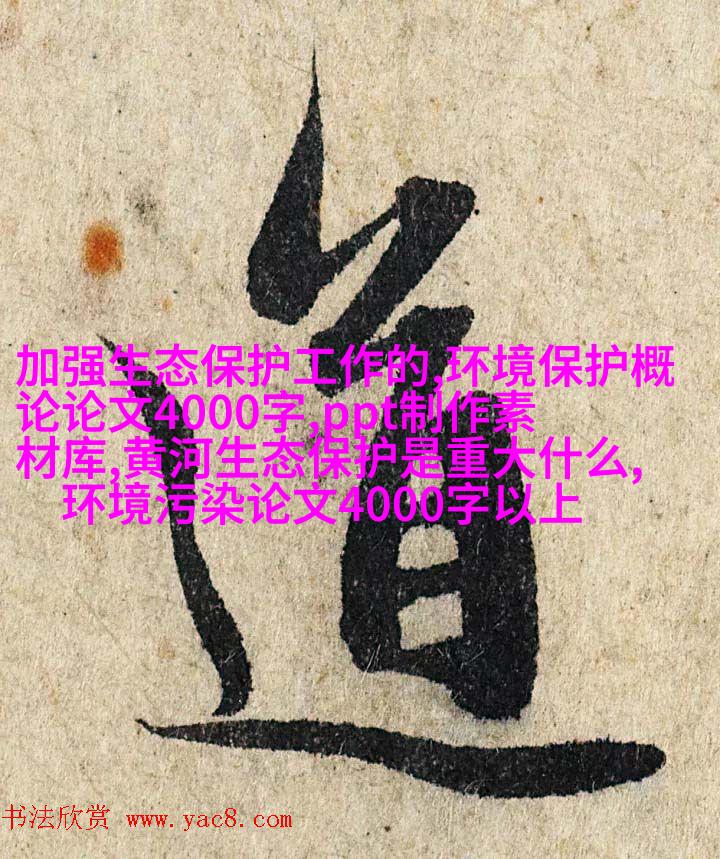 道
加强生态保护工作的,环境保护概
论论文4000字,ppt制作素
材库,黄河生态保护是重大什么,
环境污染论文4000字以上
书法欣赏 www.yac8.com